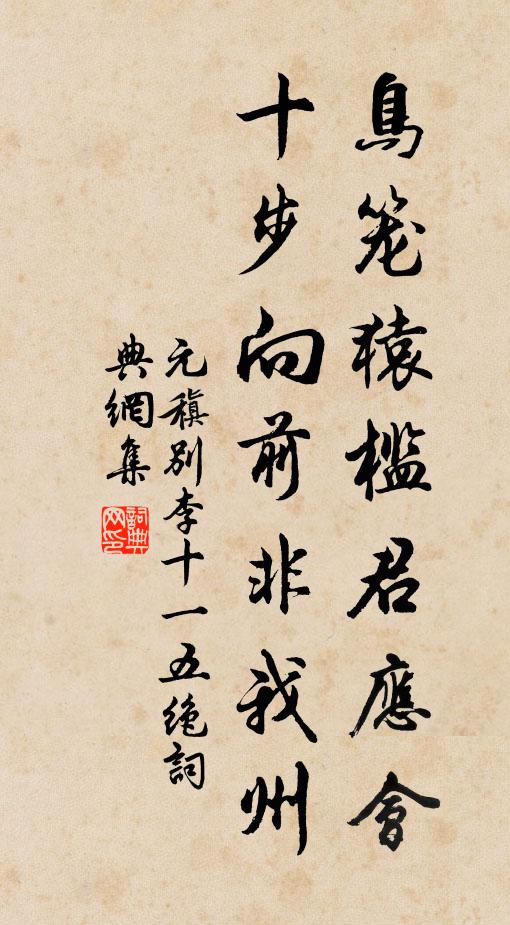 鳥笼猿檻君應會
十步向前非我州
元稹别李十一五绝詞
典網集
詞典網印